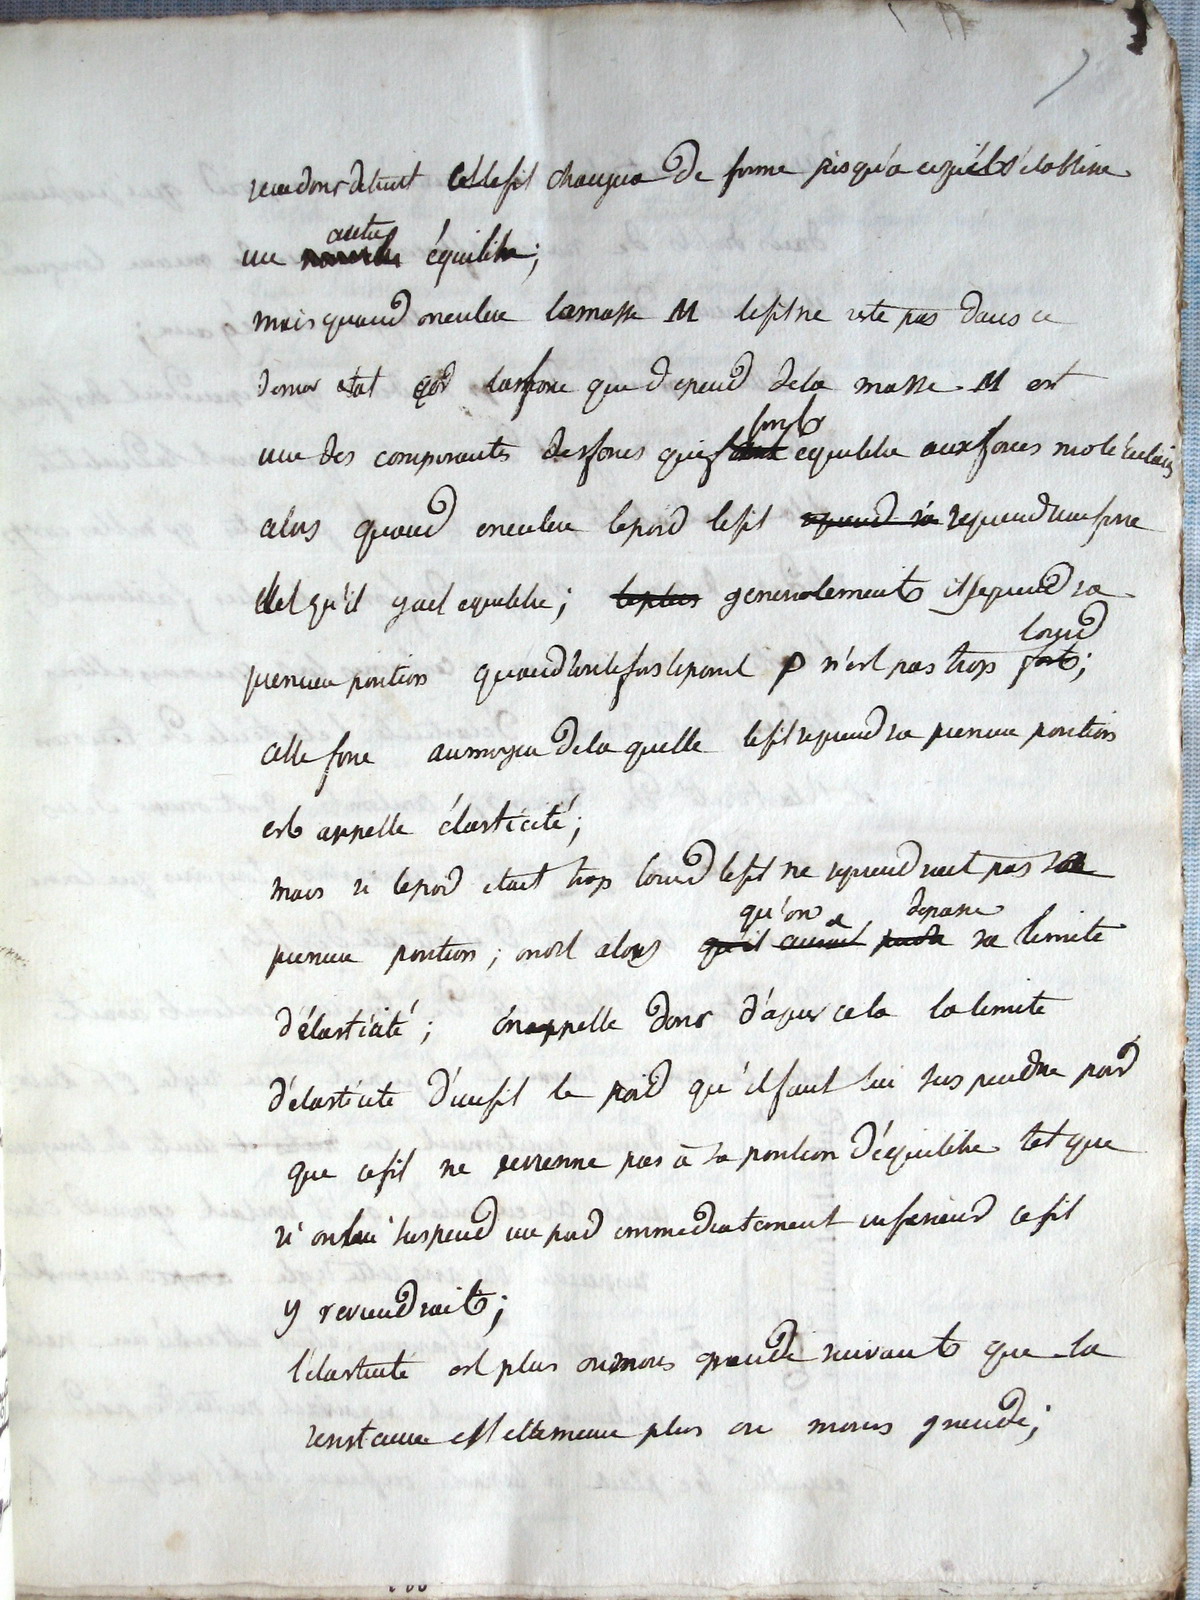 sera donc detruit et le fil changera de forme jusqu'a ce qu'il s'etablisse
un autre équilibre;
mais quand on enleve la masse M le fil ne reste pas dans ce
dernier état car la force qui depend de la masse M est
une des composantes des forces qui font equilibre aux forces moleculaires
alors quand on enleve le poid le fil reprend une forme
tel qu'il y ait equilibre; generalement il reprend sa
premiere position quand toutefois le poid P n'est pas trop lourd;
cette force au moyen de la quelle le fil reprend sa premiere position
est appelle élasticité;
mais si le poid etait trop lourd le fil ne reprendrait pas sa
premiere position; on dit alors qu'on a depassé sa limite
d'élasticité; on appelle donc d'apres cela la limite
d'élasticité d'un fil le poid qu'il faut lui suspendre pour
que ce fil ne revienne pas à sa position d'équilibre tel que
si on lui suspend un poid immediatement inferieur ce fil
y reviendrait;
l'élasticité est plus ou moins grande suivant que la
resistance est elle meme plus ou moins grande;